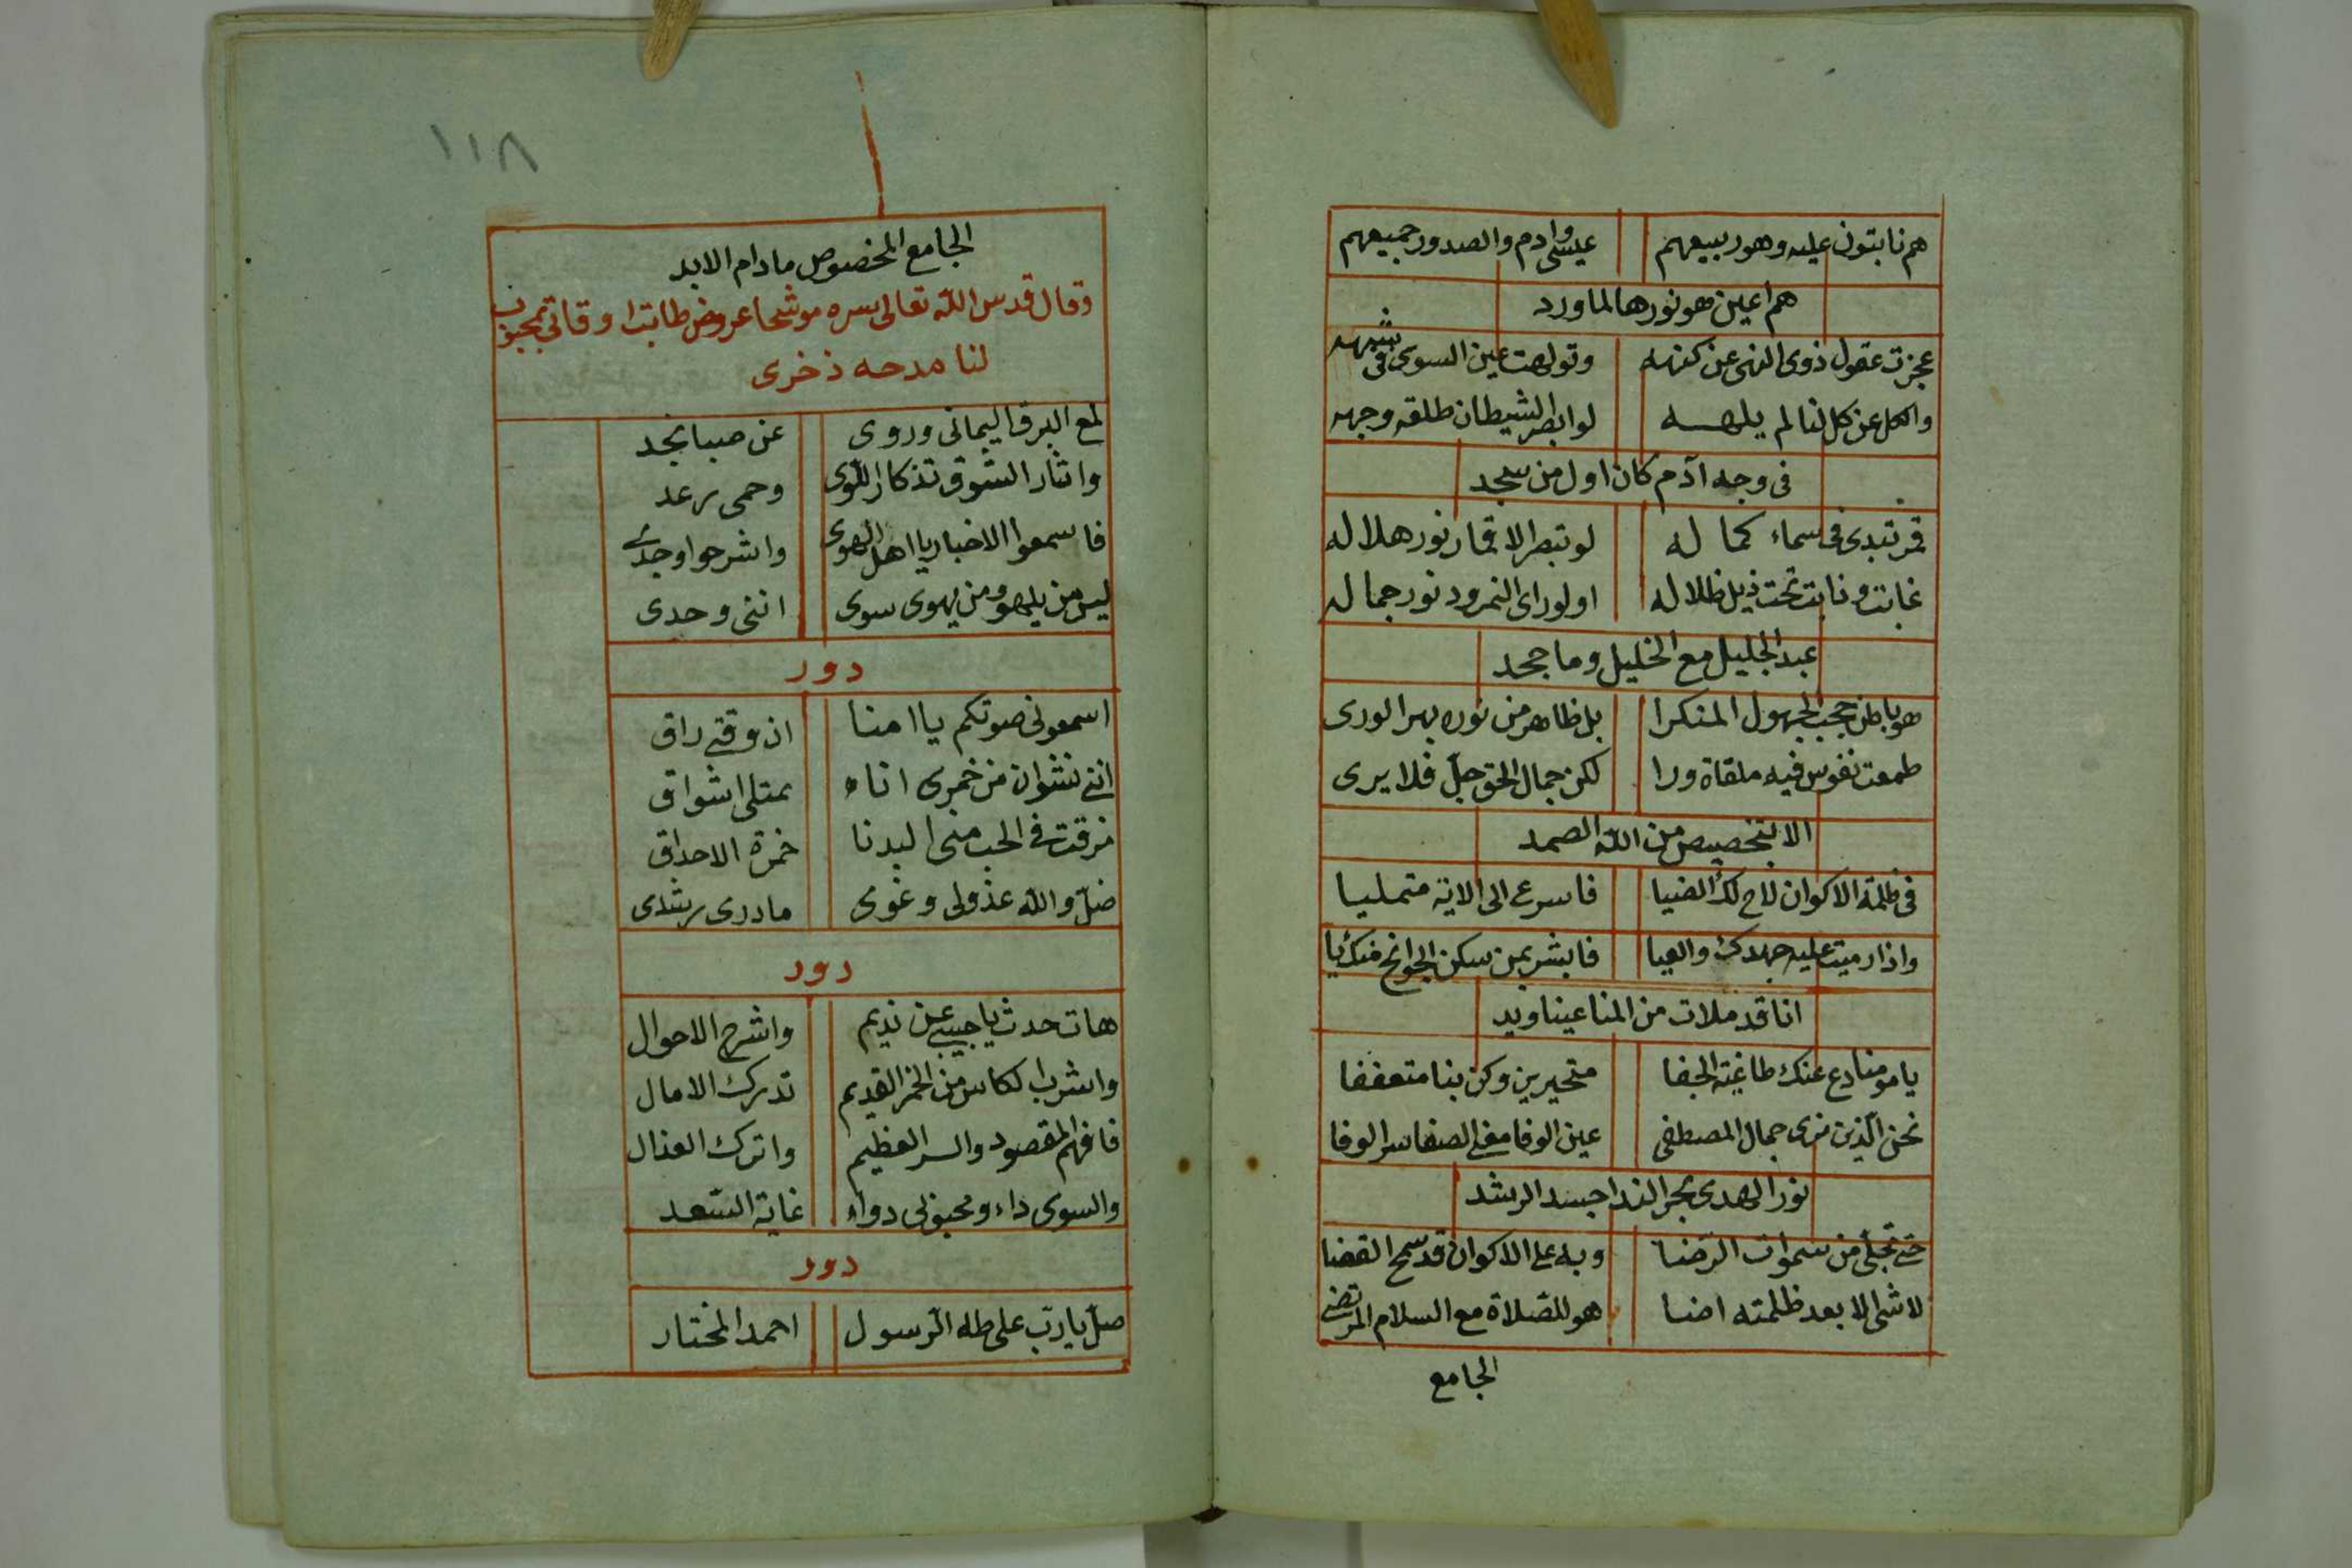 هم نابتون عليه وهو ربيعهم عيسى وادم والصدور جميعهم
هم اعين هو نورها لما ورد
عجزت عقول ذوى النهى عن كنهه وتولهت عين السوى فى شبهه
والكل عن كل لنا لم يلهه لو ابصر الشيطان طلقه وجهه
فى وجه آدم كان اول من سجد
قمر تبدى فى سماء كماله لو تبصر الاقمار نور هلاله
غابت ونابت تحت ذيل ظلاله او لو راى النمرود نور جماله
عبد الجليل مع الخليل وما جحد
هو باطن حجب الجهول المنكرا بل ظاهر من نوره بهر الورى
طمعت نفوس فيه ملقاة ورا لكن جمال الحق جلّ فلا يرى
الا بتخصيص من الله الصمد
فى ظلمة الاكوان لاح لك الضيا فاسرع الى الاية متمليا
واذا رميت عليه جهدك والعيا فابشر بمن سكن الجوانح منك يا
انا قد ملات من المنا عينا ويد
يا مومنا دع عنك طاغية الجفا متحيرين وكن بنا متعففا
نحن الذين نرى جمال المصطفى عين الوفا معنى الصفا سر الوفا
نور الهدى بحر الندا جسد الرشد
حتى تجلى من سموات الرّضا وبه على الاكوان قد سمح القضا
لا شى الا بعد ظلمته اضا هو للصّلاة مع السلام المرتضى
الجامع
١١٨
الجامع المخصوص ما دام الابد
وقال قدس الله تعالى سره موشحا عروض طابت اوقاتى بمحبوب
لنا مدحه ذخرى
لمع البرق اليمانى وروى عن صبا نجد
واثار الشوق تذكار اللّوى وحمى رعد
فاسمعوا الاخبار يا اهل الهوى واشرحوا وجدى
ليس من يلهو ومن يهوى سوى اننى وحدى
دور
اسمعونى صوتكم يا امنا ان وقتى راق
اننى نشوان من خمرى اناء بمتلى اشواق
مزقت فى الحب منى البدنا خمرة الاحداق
ضلّ والله عذولى وغوى ما درى رشدى
دور
هات حدث يا حبيبى عن نديم واشرح الاحوال
واشرب الكاس من الخمر القديم تدرك الامال
فافهم المقصود والسر العظيم واترك العذال
والسوى داء ومحبوبى دواء غاية السّعد
دور
صلّ يا ربّ على طه الرّسول احمد المختار